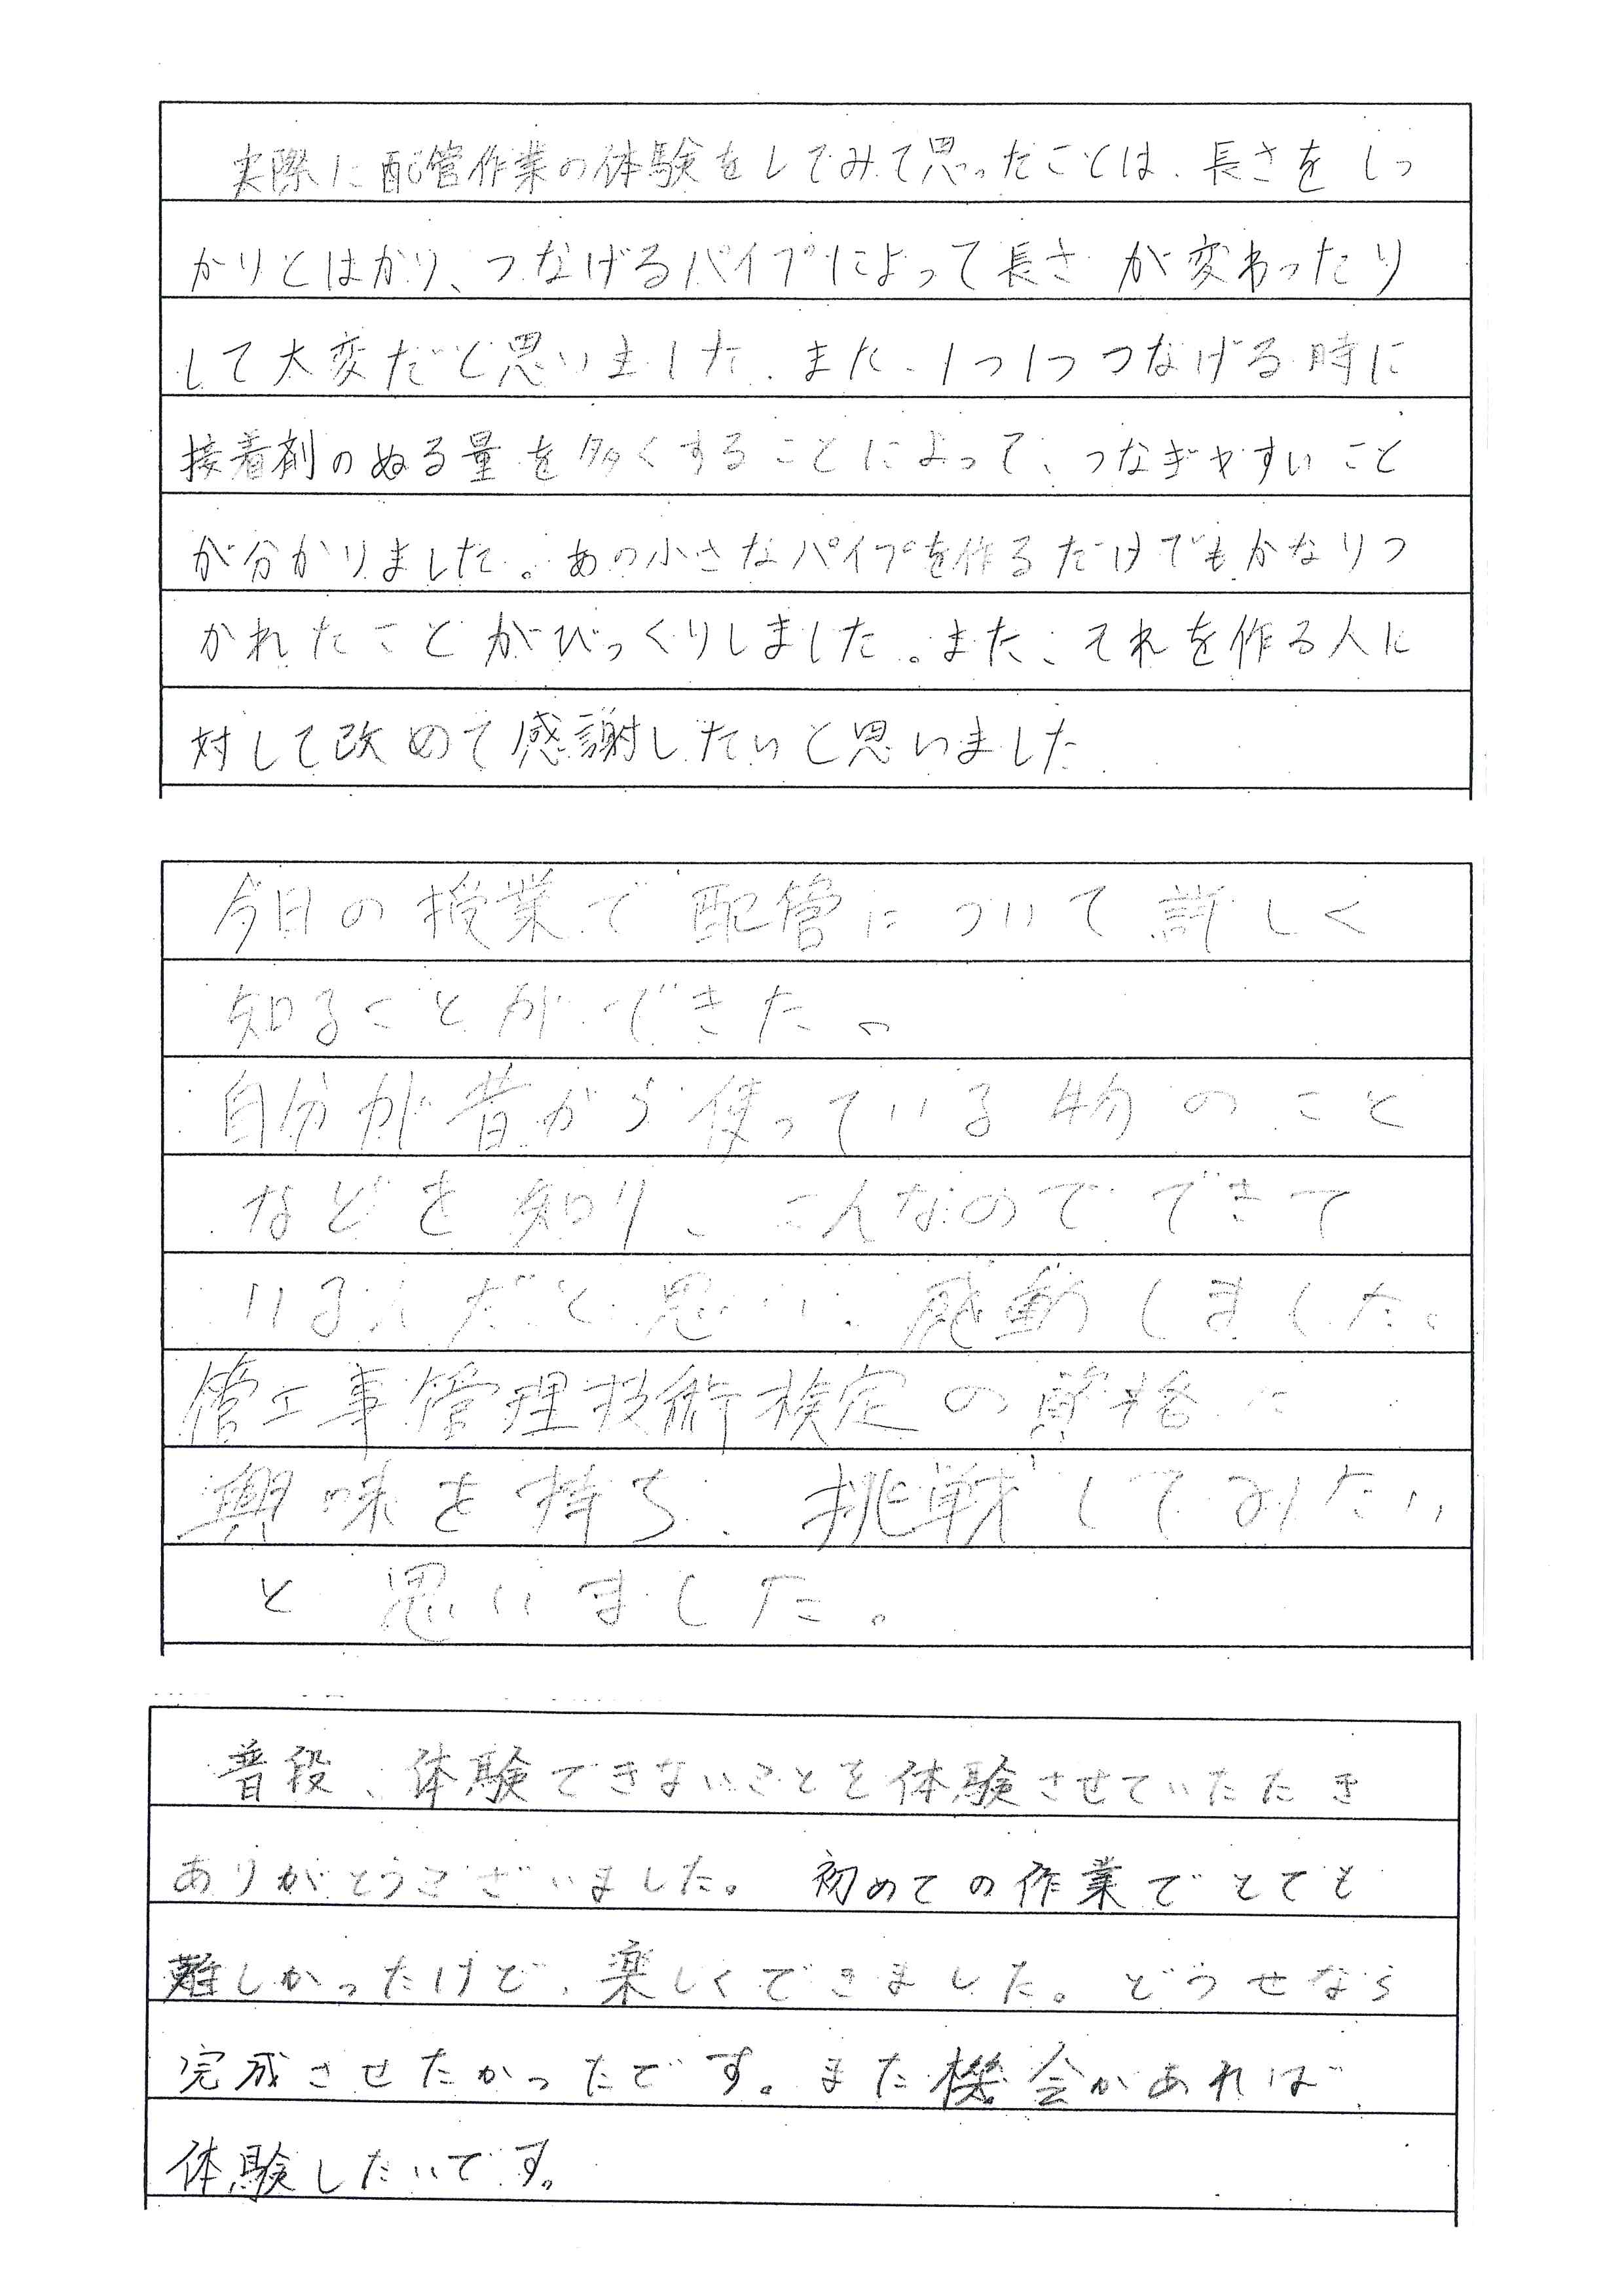 実際に配管作業の体験をしてみて思ったことは、長さをしっ
かりとはかり、つなげるパイプによって長さが変わったり
して大変だと思いました。また、1つ1つつなげる時に
接着剤のぬる量を多くすることによって、つなぎやすいこと
が分かりました。あの小さなパイプを作るだけでもかなりつ
かれたことがびっくりしました。また、それを作る人に
対して改めて感謝したいと思いました
今日の授業で配管について詳しく
知ることができた。
自分が昔から使っている物のこと
などを知り、こんなのでできて
いるんだと思い、感動しました。
管工事管理技術検定の資格に
興味を持ち、挑戦してみたい
と思いました。
普段、体験できないことを体験させていたたき
ありがとうございました。 初めての作業でとても
難しかったけど、楽しくできました。どうせなら
完成させたかったです。また機会があれば
体験したいです。